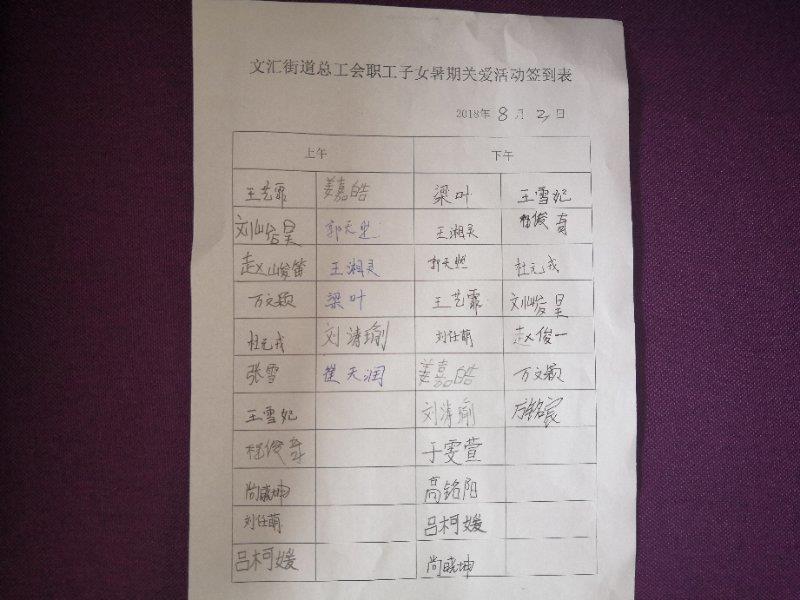 文汇街道总工会职工子女暑期关爱活动签到表
2018年 8 月 2 日
上午 下午
王艺霏 姜嘉皓 梁叶 王雪妃
刘峻昊 郭天熙 王湘灵
赵峻笛 王湘灵 郭天熙 杜元戎
万文颖 梁叶 王艺霏 刘峻昊
杜元戎 刘涛瑜 刘任萌 赵俊一
张雪 崔天润 姜嘉皓 万文颖
王雪妃 刘涛瑜
于雯萱
尚晓坤 高铭阳
刘任萌 吕柯媛
吕柯媛 尚晓坤